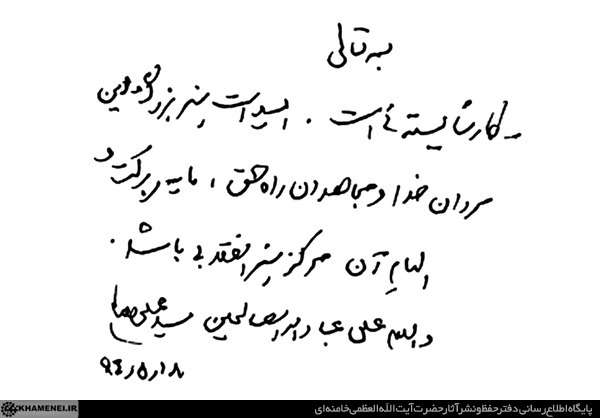 بسمه تعالی
کار شایسته‌ئی است. امید است هنر بزرگداشت این
مردان خدا و مجاهدان راه حق، مایه برکت و
الهام آن مرکز هنر انقلابی باشد.
والسلام علی عباد الله الصالحین سید علی خامنه‌ای
۹۴/۵/۱۸
KHAMENEI.IR
پایگاه اطلاع‌رسانی دفتر حفظ و نشر آثار حضرت آیت الله العظمی خامنه‌ای